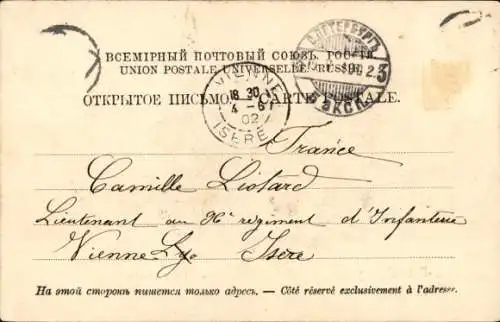 ВСЕМІРНЫЙ ПОЧТОВЫЙ СОЮЗЪ. РОССІЯ.
UNION POSTALE UNIVERSELLE. RUSSIE.
ОТКРЫТОЕ ПИСЬМО. — CARTE POSTALE.
С.ПЕТЕРБУРГЪ
5 ЭКСП.
VIENNE
18 30
4 - 6
02
ISERE
France
Camille Liotard
Lieutenant au 96e regiment d'Infanterie
Vienne Isère
На этой сторонѣ пишется только адресъ. — Côté réservé exclusivement à l'adresse.